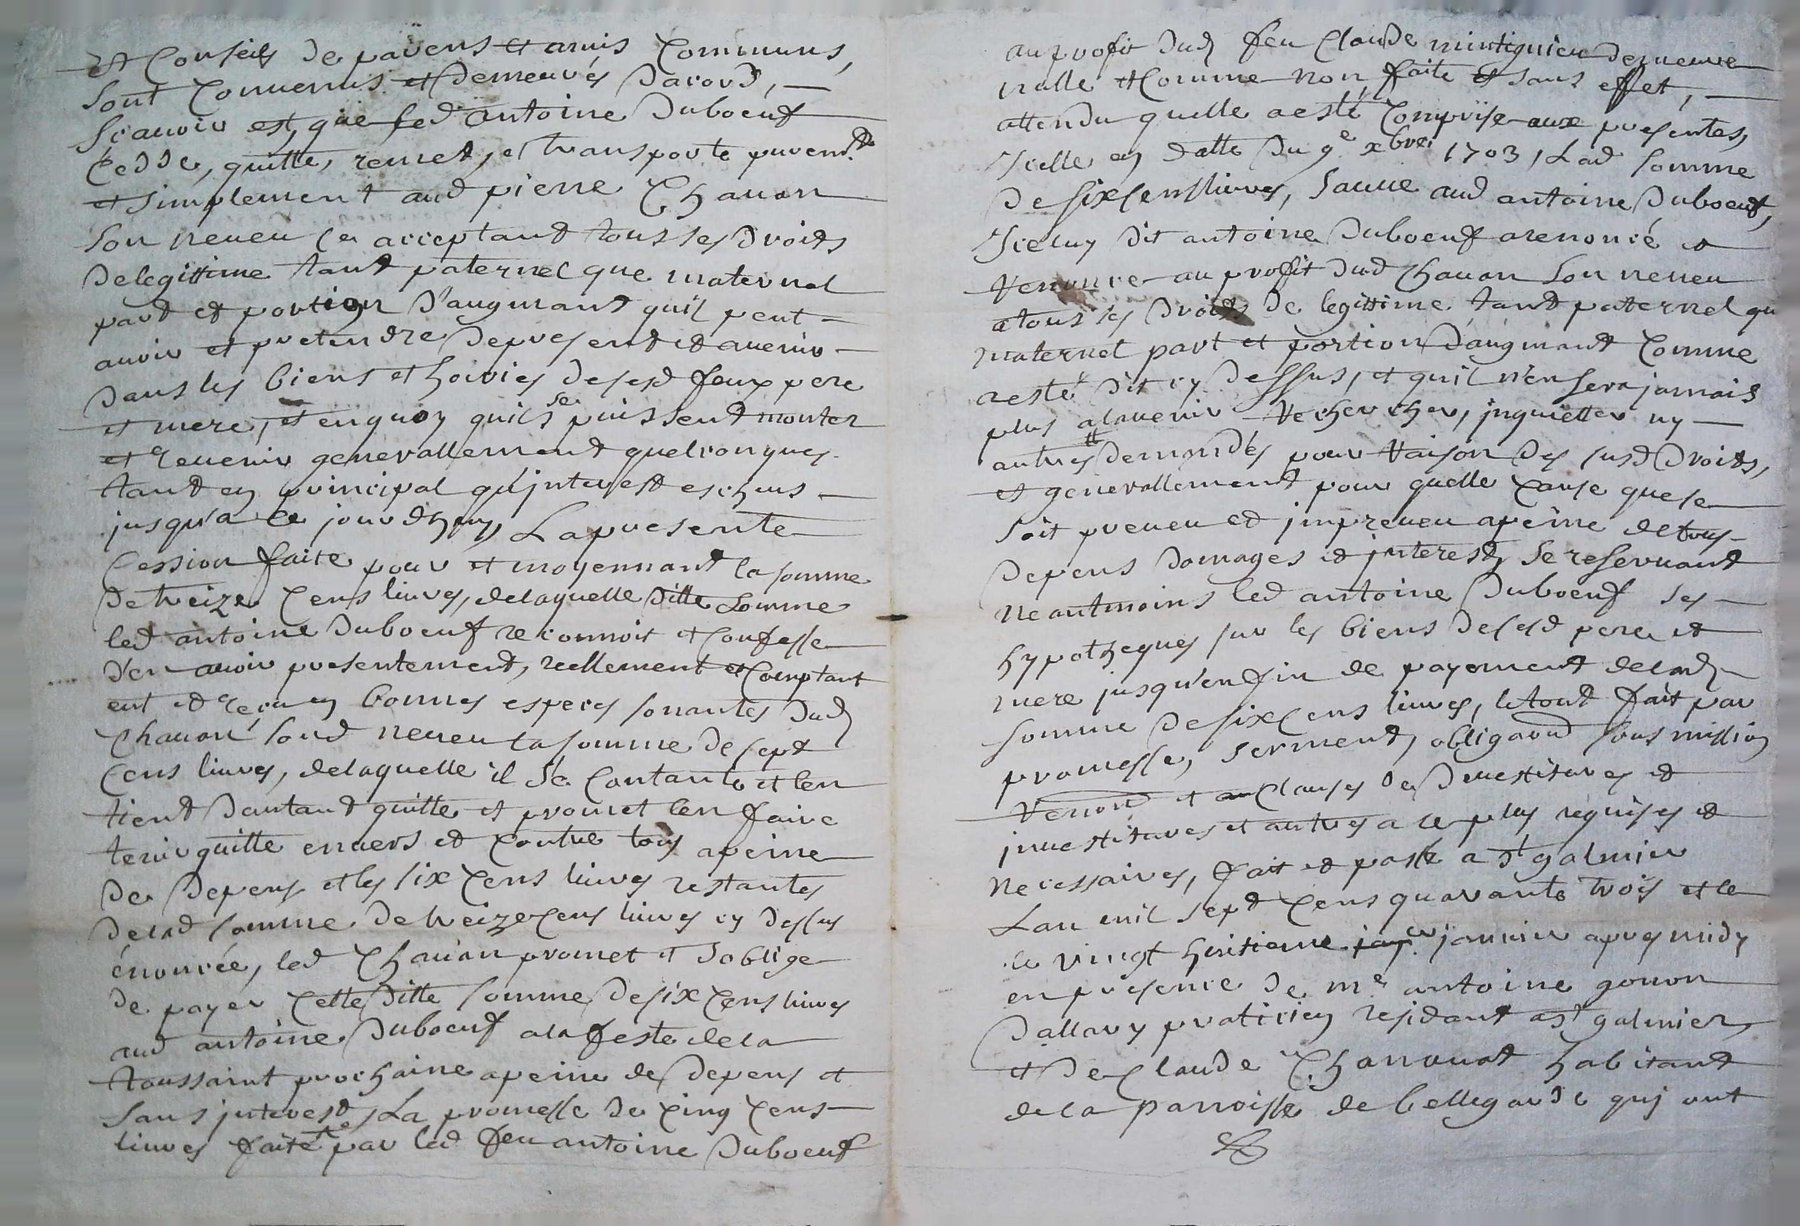 et Conseils de parens et amis Communs,
sont Convenus et demeurés dacord,
scavoir est, que led antoine Duboeuf
Cedde, quitte, remet, et transporte purem.t
et simplement aud pierre Chavan
son neveu Ce acceptant tous ses droits
de legittime tant paternel que maternel
part et portion d'augmant quil peut
avoir et pretendre de present et avenir
dans les biens et hoiries desesd feux pere
et mere, et en quoy quils se puissent monter
et revenir generallement quelconques
tant en principal qu'interest eschus
jusqu'a Ce jourdhuy, La presente
Cession faite pour et moyennant la somme
de treize Cens livres, de laquelle ditte somme
led antoine Duboeuf reconnoit et Confesse
d'en avoir presentement, reellement et Comptant
eut et receu en bonnes especes sonantes dud
Chavan sond neveu la somme de sept
Cens livres, de laquelle il se Contante et len
tient dautant quitte et promet len faire
tenir quitte envers et Contre tous apeine
de depens et les six Cens livres restantes
delad somme de treize Cens livres cy dessus
énoncée, led Chavan promet et s'oblige
de payer Cette ditte somme de six Cens livres
aud antoine Duboeuf a la feste de la
toussaint prochaine apeine de depens et
sans interest, La promesse de Cinq Cens
livres faite par led feu antoine Duboeuf
au profit dud feu Claude demeure
nulle et Comme non faite et sans effet,
attendu quelle a esté Comprise aux presentes,
Icelle en datte du 9e xbre 1703, Lad somme
de six Cens livres, sauve aud antoine Duboeuf,
Iceluy dit antoine Duboeuf a renoncé et
renonce au profit dud Chavan son neveu
a tous ses droits de legittime tant paternel qu
maternel part et portion daugmant Comme
a esté dit cy dessus, et quil n'en sera jamais
plus a lavenir rechercher, inquietter ny
autres demandes pour raison des susd droits,
et generallement pour quelle Cause que se
soit preveu et impreveu apeine de tous
depens domages et interests, se reservant
neantmoins led antoine Duboeuf ses
hypotheques sur les biens desesd pere et
mere jusqu'en fin de payement delad
somme de six Cens livres, le tout fait par
promesse, serment, obligaond soumission
renond et Clauses de devestitures et
investitures et autres a ce plus requises et
necessaires, fait et passé a st galmier
Lan mil sept Cens quarante trois et le
le vingt huitieme janvier apres midy
en presence de me antoine gonon
Dallary praticien residant a st galmier,
et de Claude habitant
de la parroisse de bellegarde qui ont